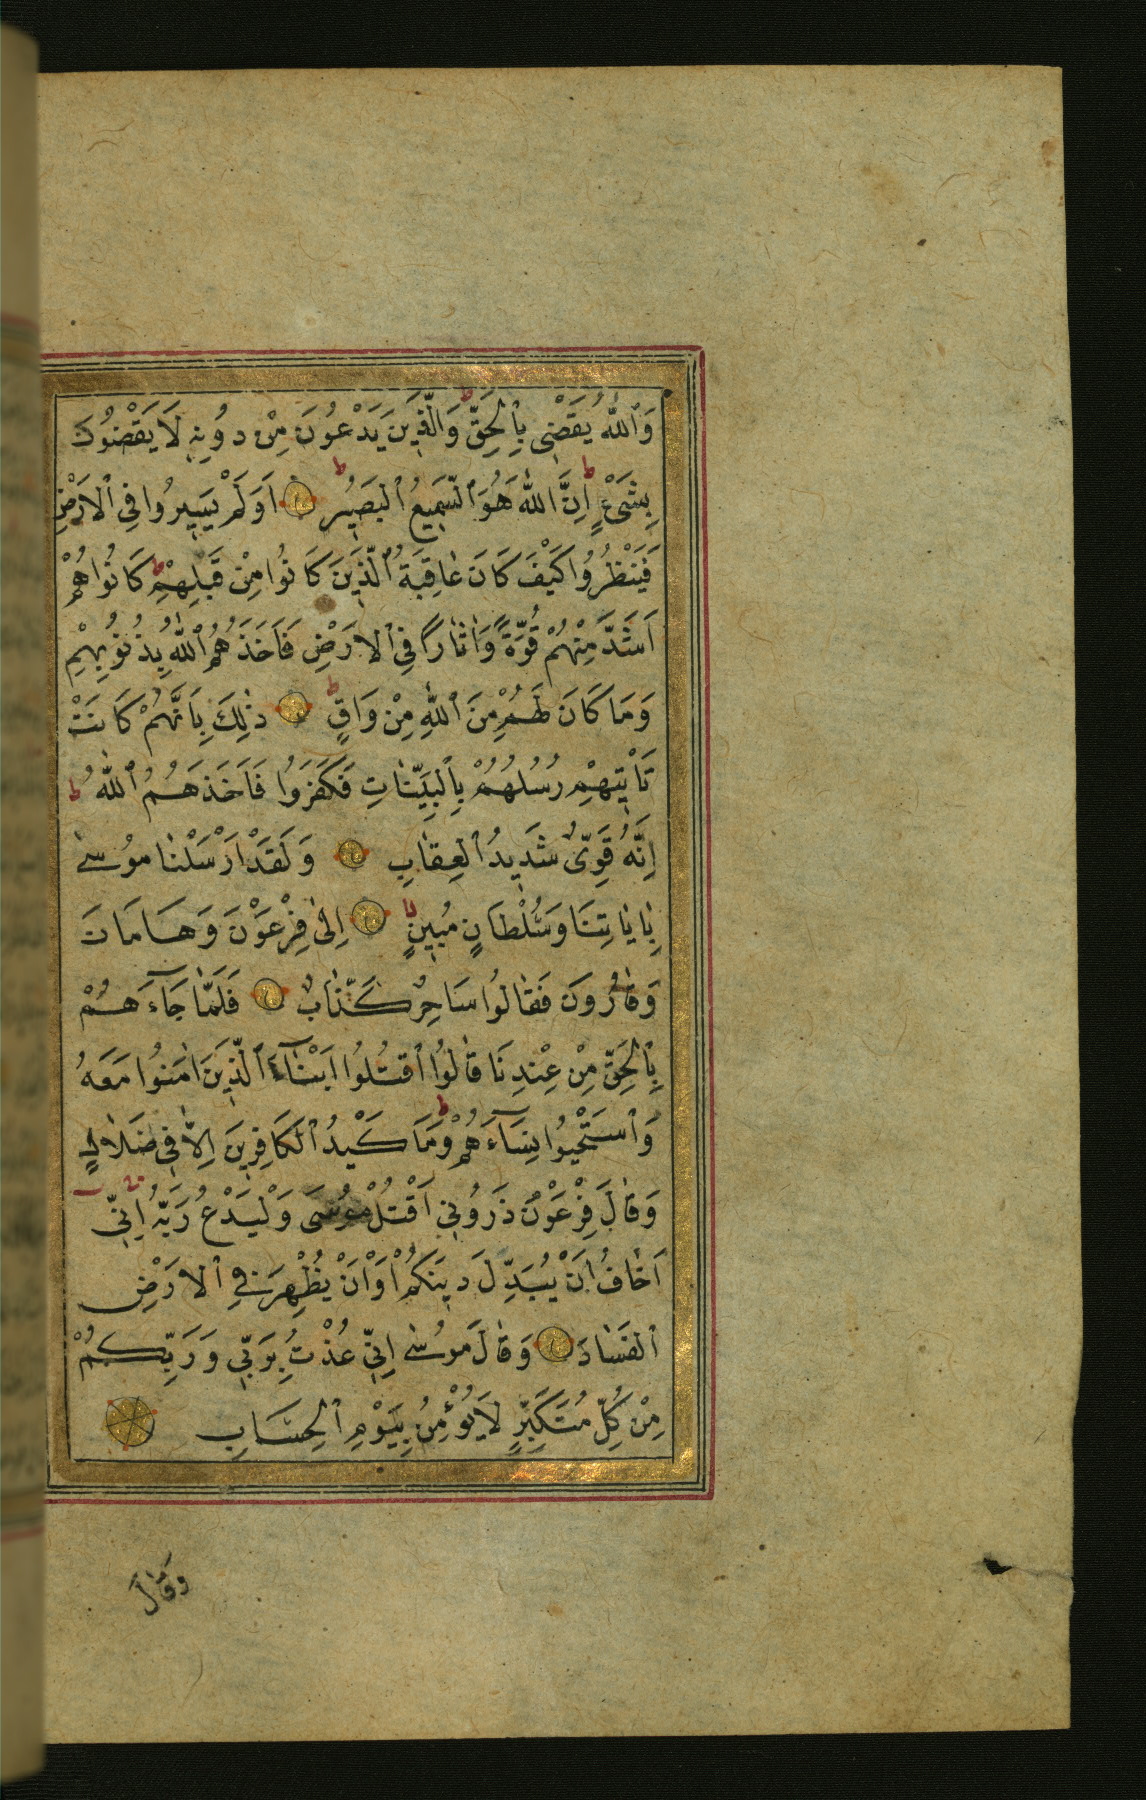 وَٱللّٰهُ يَقْضِى بِٱلْحَقِّ ط وَٱلَّذِينَ يَدْعُونَ مِنْ دُونِهِ لَا يَقْضُونَ
بِشَىْءٍ ط اِنَّ اللّٰهَ هُوَ ٱلسَّمِيعُ ٱلْبَصِيرُ ط اَوَلَمْ يَسِيرُوا فِى ٱلْاَرْضِ
فَيَنْظُرُوا كَيْفَ كَانَ عَاقِبَةُ ٱلَّذِينَ كَانُوا مِنْ قَبْلِهِمْ ط كَانُوا هُمْ
اَشَدَّ مِنْهُمْ قُوَّةً وَاٰثَارًا فِى ٱلْاَرْضِ فَاَخَذَهُمُ ٱللّٰهُ بِذُنُوبِهِمْ
وَمَا كَانَ لَهُمْ مِنَ ٱللّٰهِ مِنْ وَاقٍ ط ذٰلِكَ بِاَنَّهُمْ كَانَتْ
تَاْتِيهِمْ رُسُلُهُمْ بِٱلْبَيِّنَاتِ فَكَفَرُوا فَاَخَذَهُمُ ٱللّٰهُ ط
اِنَّهُ قَوِىٌّ شَدِيدُ ٱلْعِقَابِ وَلَقَدْ اَرْسَلْنَا مُوسٰى
بِاٰيَاتِنَا وَسُلْطَانٍ مُبِينٍ لا اِلٰى فِرْعَوْنَ وَهَامَانَ
وَقَارُونَ فَقَالُوا سَاحِرٌ كَذَّابٌ فَلَمَّا جَآءَهُمْ
بِٱلْحَقِّ مِنْ عِنْدِنَا قَالُوا ٱقْتُلُوا اَبْنَآءَ ٱلَّذِينَ اٰمَنُوا مَعَهُ
وَٱسْتَحْيُوا نِسَآءَهُمْ ط وَمَا كَيْدُ ٱلْكَافِرِينَ اِلَّا فِى ضَلَالٍ
وَقَالَ فِرْعَوْنُ ذَرُونِى اَقْتُلْ مُوسَى وَلْيَدْعُ رَبَّهُ اِنِّى
اَخَافُ اَنْ يُبَدِّلَ دِينَكُمْ اَوْ اَنْ يُظْهِرَ فِى ٱلْاَرْضِ
ٱلْفَسَادَ وَقَالَ مُوسٰى اِنِّى عُذْتُ بِرَبِّى وَرَبِّكُمْ
مِنْ كُلِّ مُتَكَبِّرٍ لَا يُؤْمِنُ بِيَوْمِ ٱلْحِسَابِ
وَقَالَ